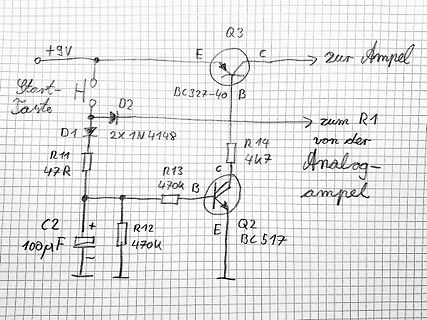 Q3
+9V
E
C
zur Ampel
Start-
Taste
BC327-40
B
D2
zum R1
D1
2x1N4148
von der
R11
47R
R14
4k7
Analog-
R13
470k
C
ampel
B
C2
100µF
+
-
R12
470k
E
Q2
BC517